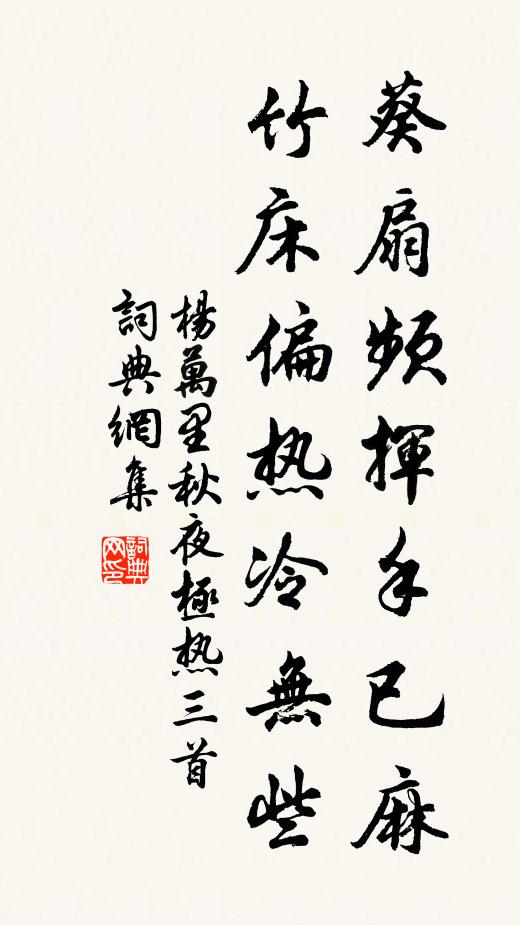 葵扇頻揮手已麻
竹床偏热冷無些
楊萬里秋夜極热三首
詞典網集
詞典网印